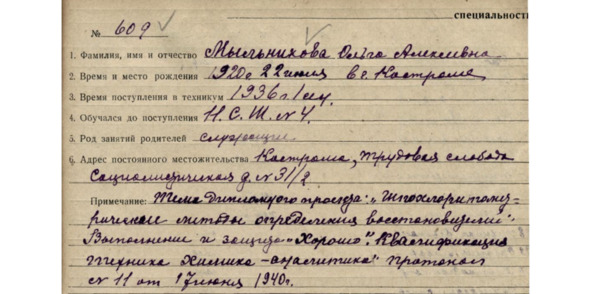 специальность
№ 609
1. Фамилия, имя и отчество Мыльникова Ольга Алексеевна
2. Время и место рождения 1920г 22 июня в г. Костроме
3. Время поступления в техникум 1936 г. 1/IX
4. Обучался до поступления Н.С.Ш. №4.
5. Род занятий родителей служащие
6. Адрес постоянного местожительства Кострома, Трудовая слобода
Социалистическая д. №31/2
Примечание: Тема дипломного проекта: „Гипохлоритомет-
рические методы определения восстановителей".
Выполнение и защита – „Хорошо". Квалификация
техника химика-аналитика. Протокол
№ 11 от 17 июня 1940г.